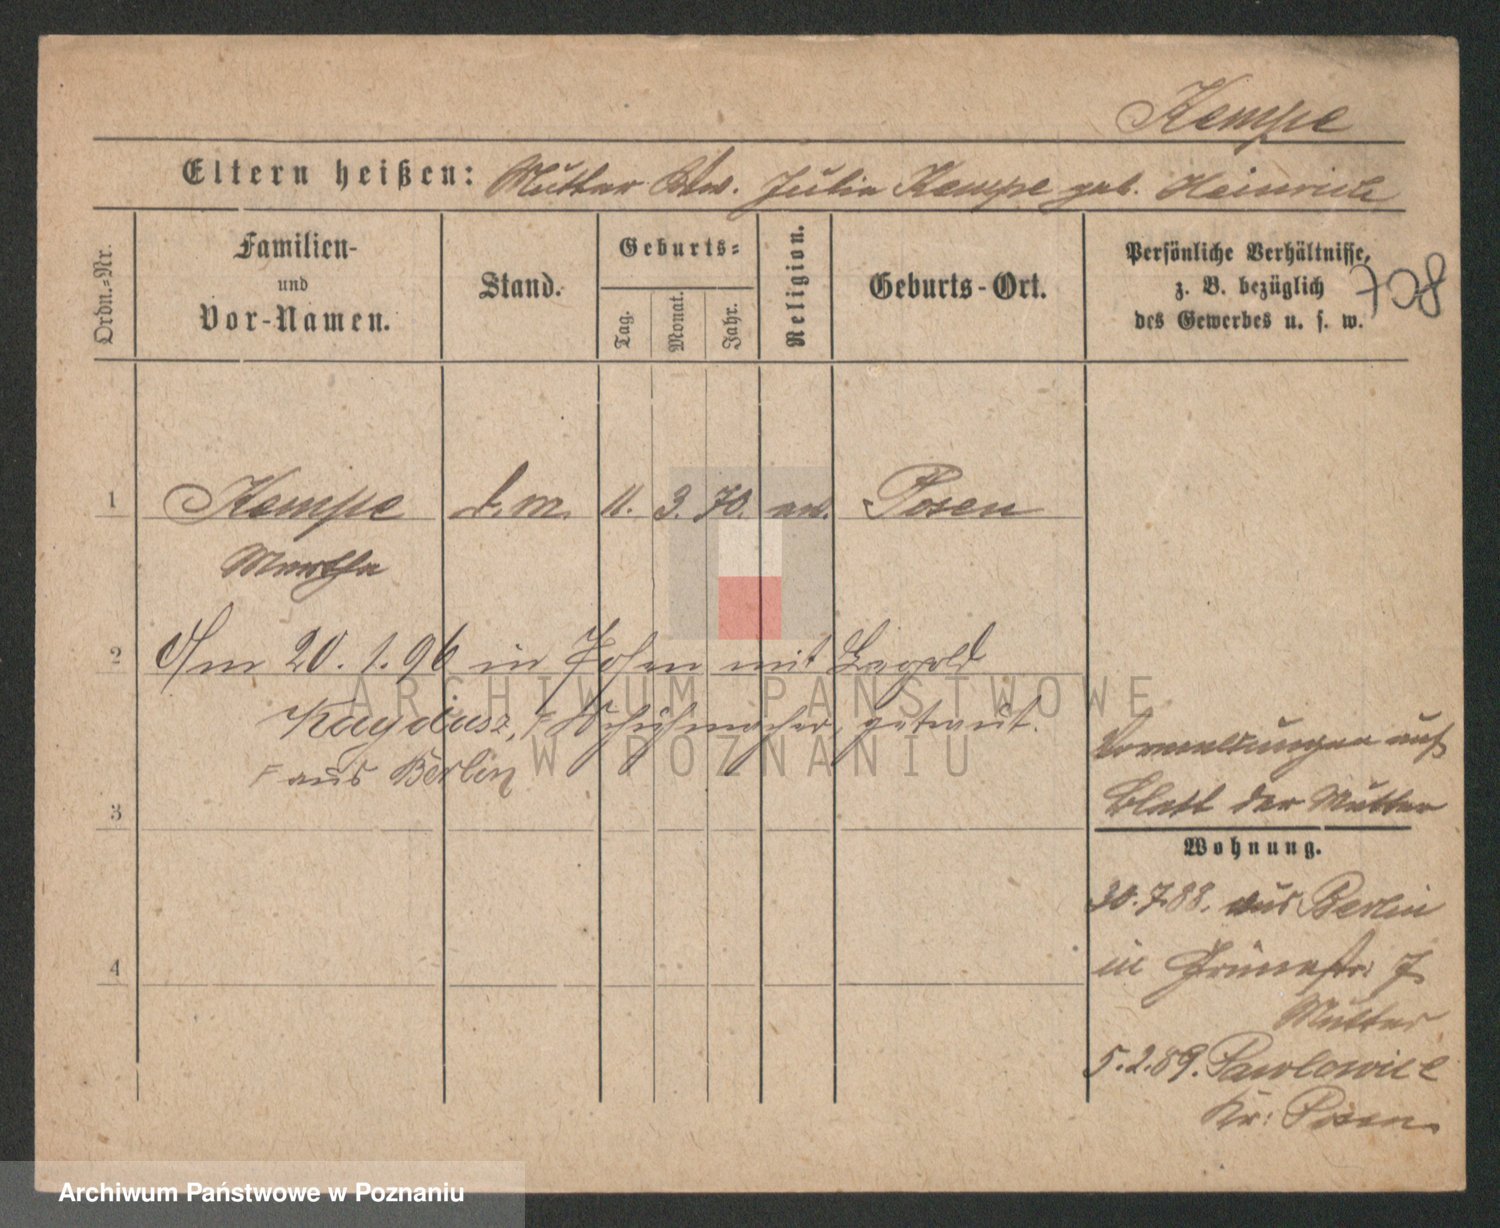 Kempe
Eltern heißen: Mutter Wtw. Julie Kempe geb. Heinrich
Ordn.-Nr.
Familien-
und
Vor-Namen.
Stand.
Geburts-
Tag.
Monat.
Jahr.
Religion.
Geburts-Ort.
Persönliche Verhältnisse,
z. B. bezüglich
des Gewerbes u. s. w.
708
1 Kempe d. m. 11. 3. 70. ev. Posen
Martha
2 Am 20. 1. 96 in Posen mit
Schuhmacher, getraut.
aus Berlin
3
4
auf
Blatt der Mutter
Wohnung.
30.7.88. aus Berlin
in Grünestr. 7
Mutter
5.2.89. Pawlowice
Kr: Posen.
ARCHIWUM PAŃSTWOWE
W POZNANIU
Archiwum Państwowe w Poznaniu